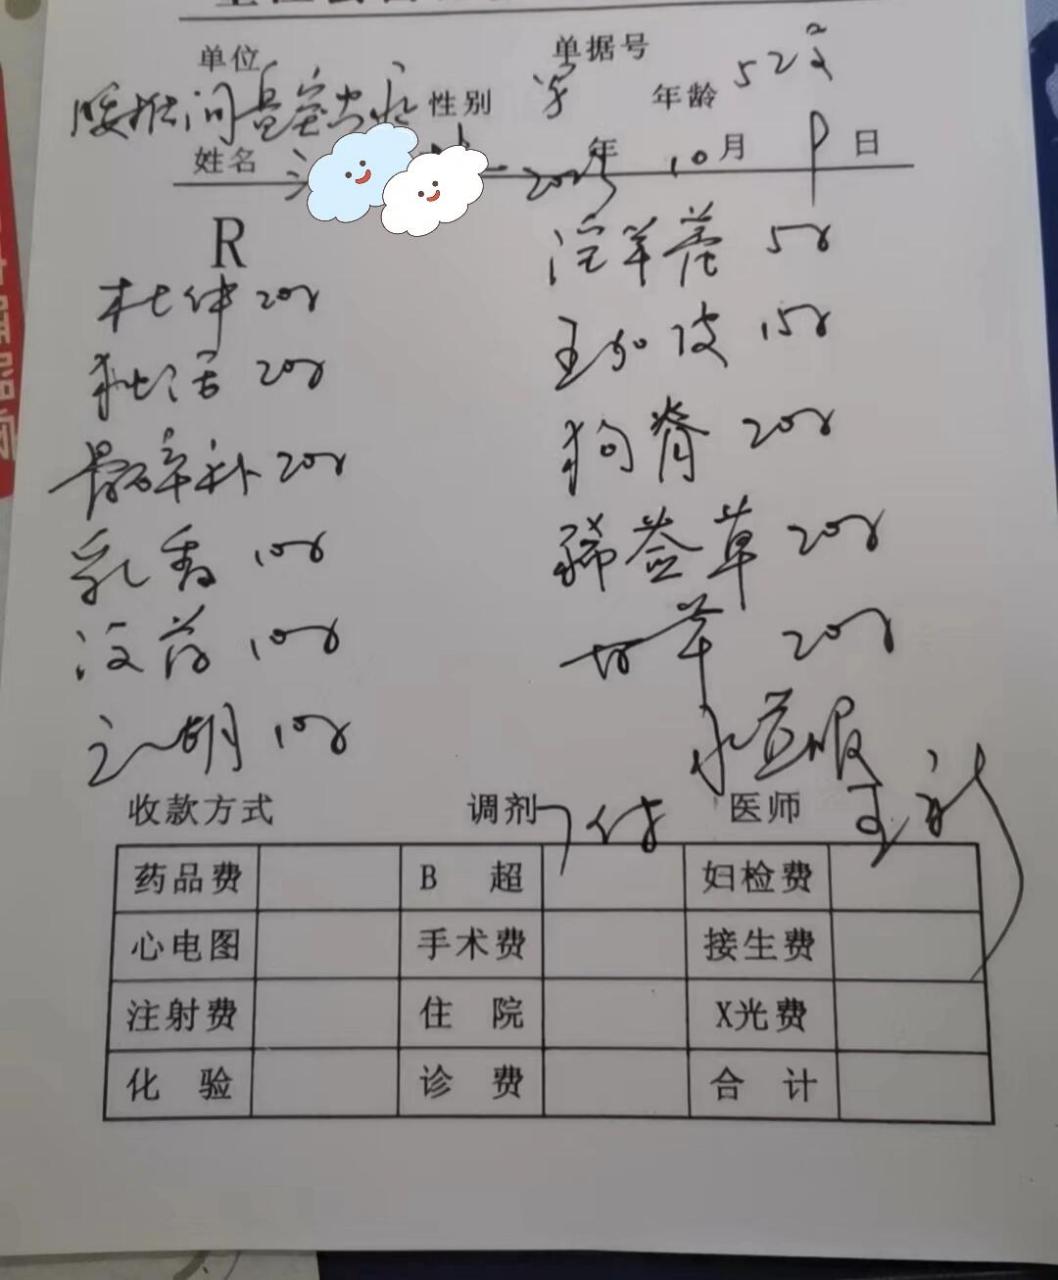 单位 单据号
腰椎间盘突出 性别 男 年龄 52岁
姓名 2025年 10月 9日
R
杜仲 20g
独活 20g
骨碎补 20g
乳香 10g
没药 10g
元胡 10g
淫羊藿 5g
五加皮 15g
狗脊 20g
豨莶草 20g
甘草 20g
水煎服
收款方式 调剂 7付 医师
药品费 B 超 妇检费
心电图 手术费 接生费
注射费 住 院 X光费
化 验 诊 费 合 计